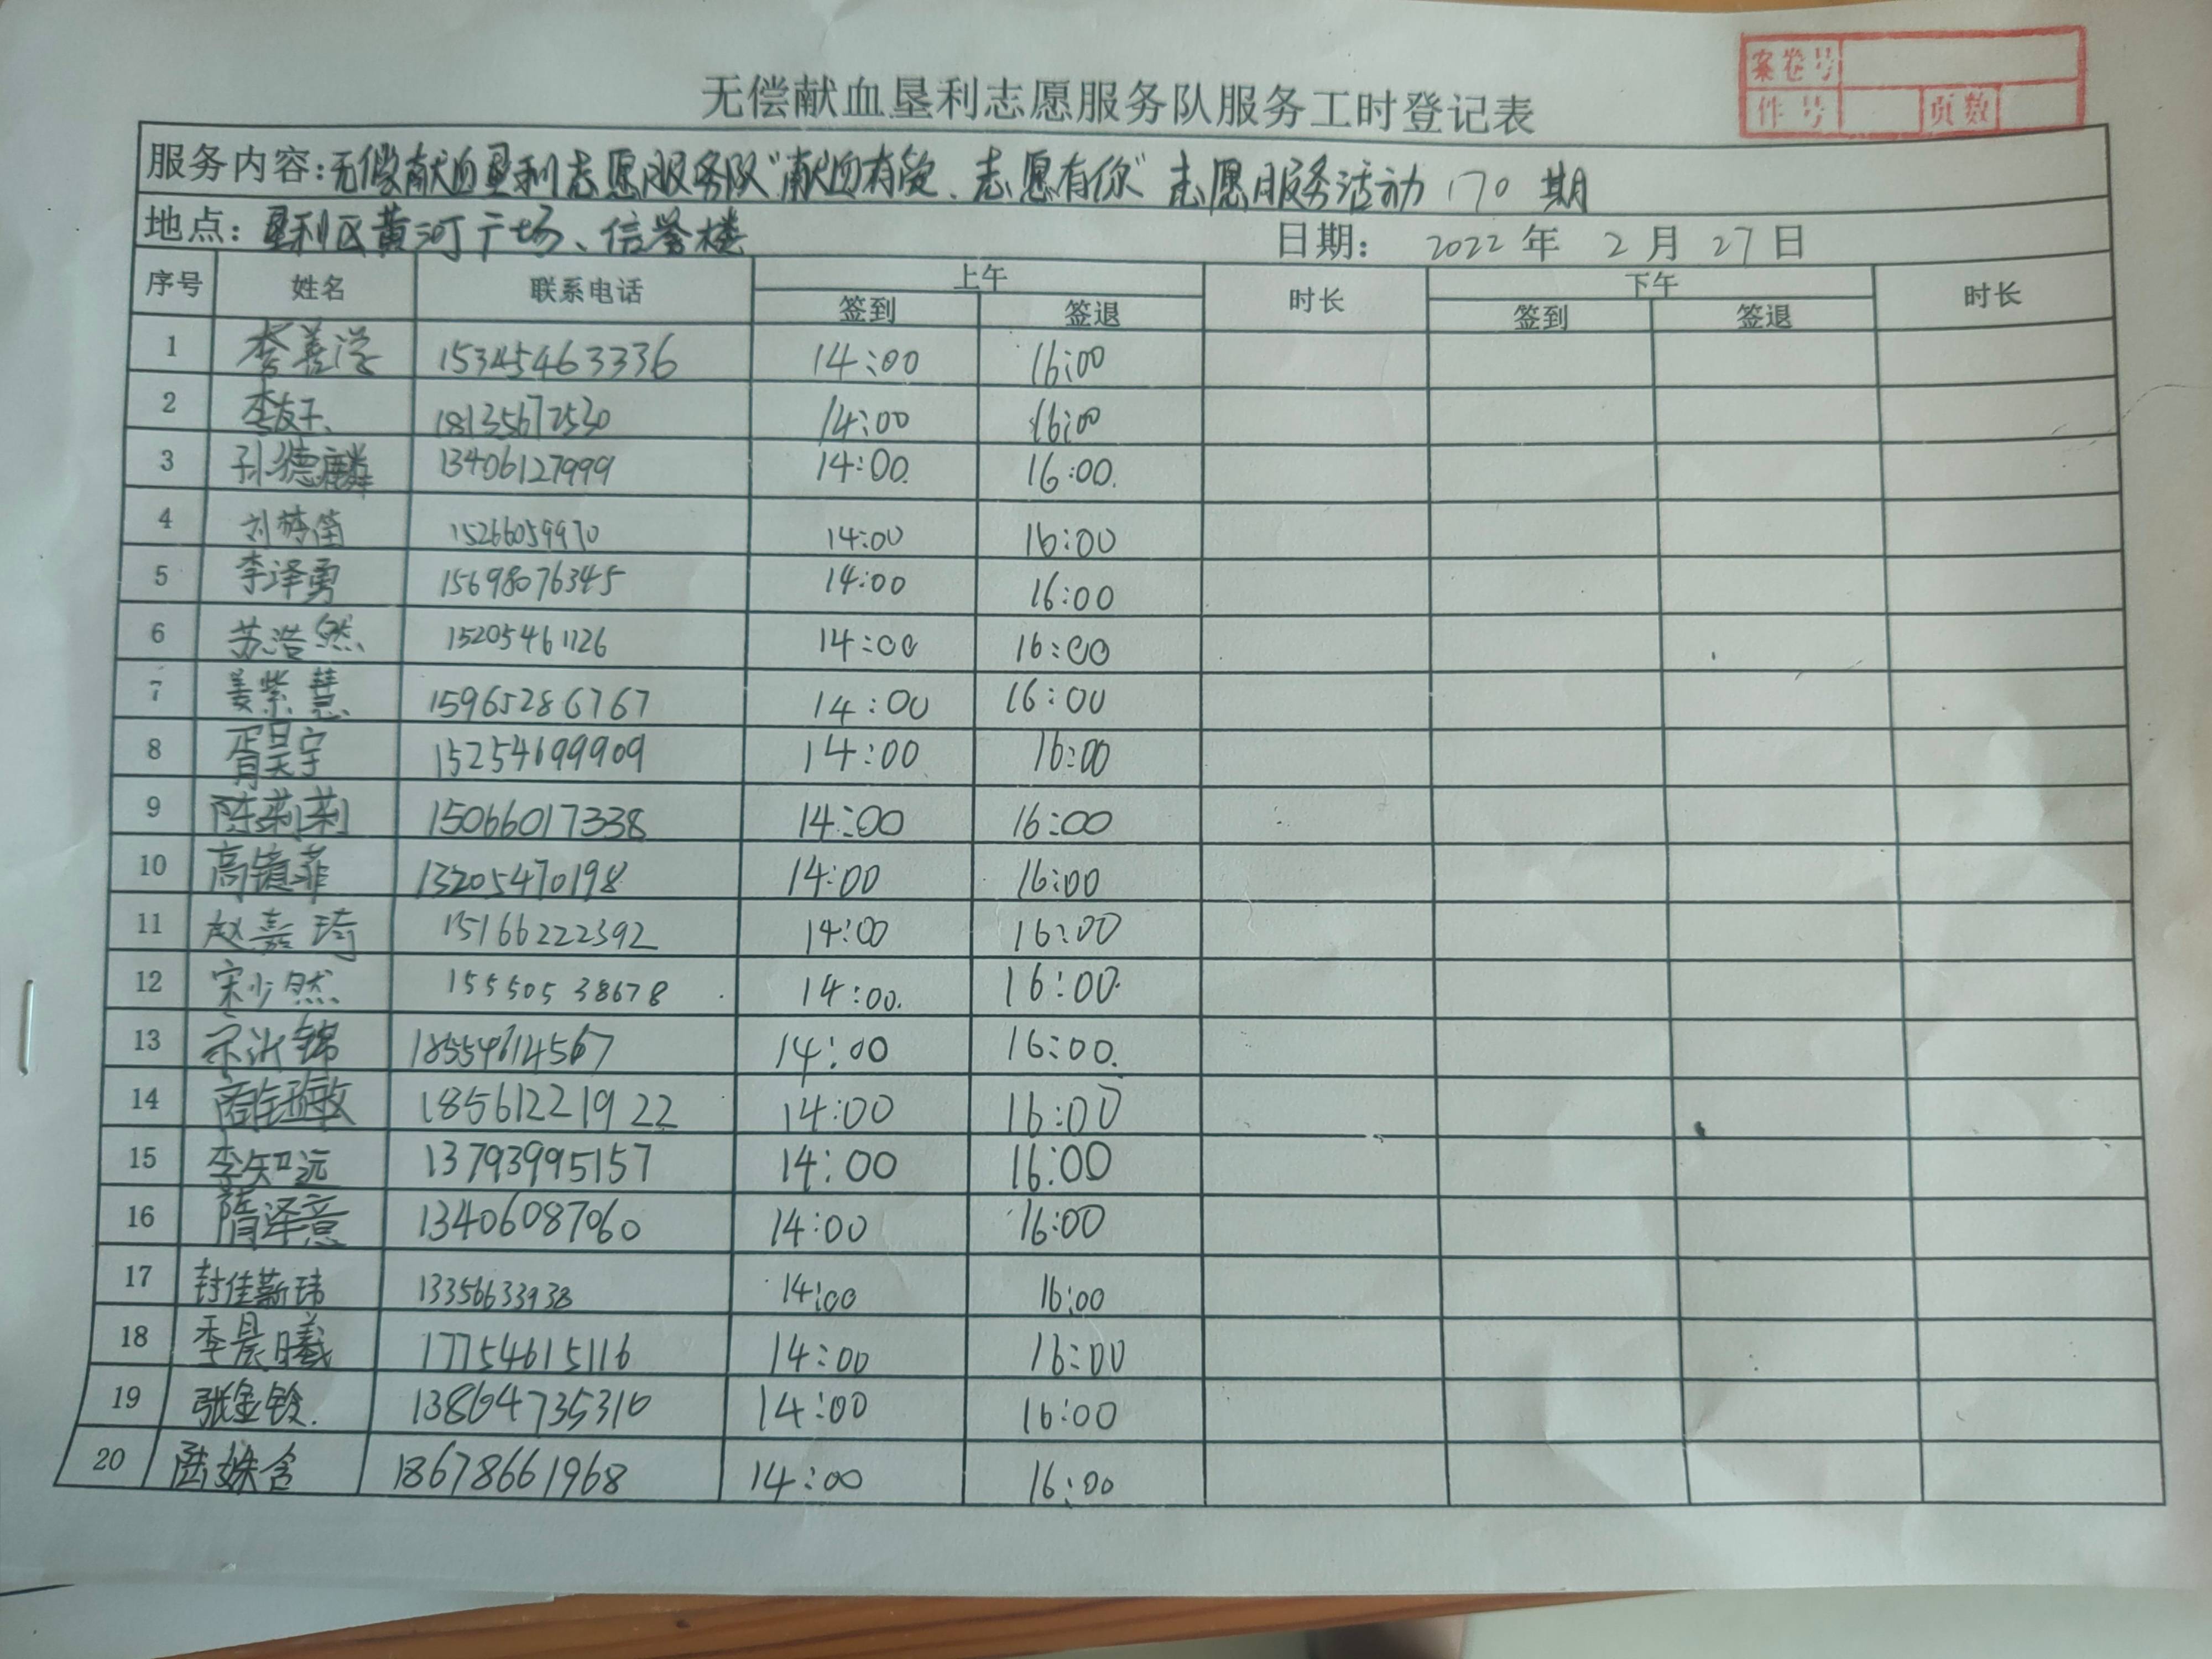 案卷号
件号 页数
无偿献血垦利志愿服务队服务工时登记表
服务内容:无偿献血垦利志愿服务队"献血有爱、志愿有你"志愿服务活动 170 期
地点:垦利区黄河广场、信誉楼 日期: 2022 年 2 月 27 日
序号 姓名 联系电话 上午 时长 下午 时长
签到 签退 签到 签退
1 李善学 15345463336 14:00 16:00
2 李友于 18135672530 14:00 16:00
3 孙德麟 13406127999 14:00 16:00
4 刘 15266059970 14:00 16:00
5 李泽勇 15698076345 14:00 16:00
6 苏浩然 15205461126 14:00 16:00
7 姜紫慧 15965286767 14:00 16:00
8 胥昊宇 15254699909 14:00 16:00
9 陈莉莉 15066017338 14:00 16:00
10 高镱菲 13205470198 14:00 16:00
11 赵嘉琦 15166222392 14:00 16:00
12 宋少然 15550538678 14:00 16:00
13 宋沂锦 18554614567 14:00 16:00
14 商钰敏 18561221922 14:00 16:00
15 李知远 13793995157 14:00 16:00
16 隋泽意 13406087060 14:00 16:00
17 封佳薪玮 13356633938 14:00 16:00
18 季晨曦 17754615116 14:00 16:00
19 张金铃 13864735310 14:00 16:00
20 陆姝含 18678661968 14:00 16:00